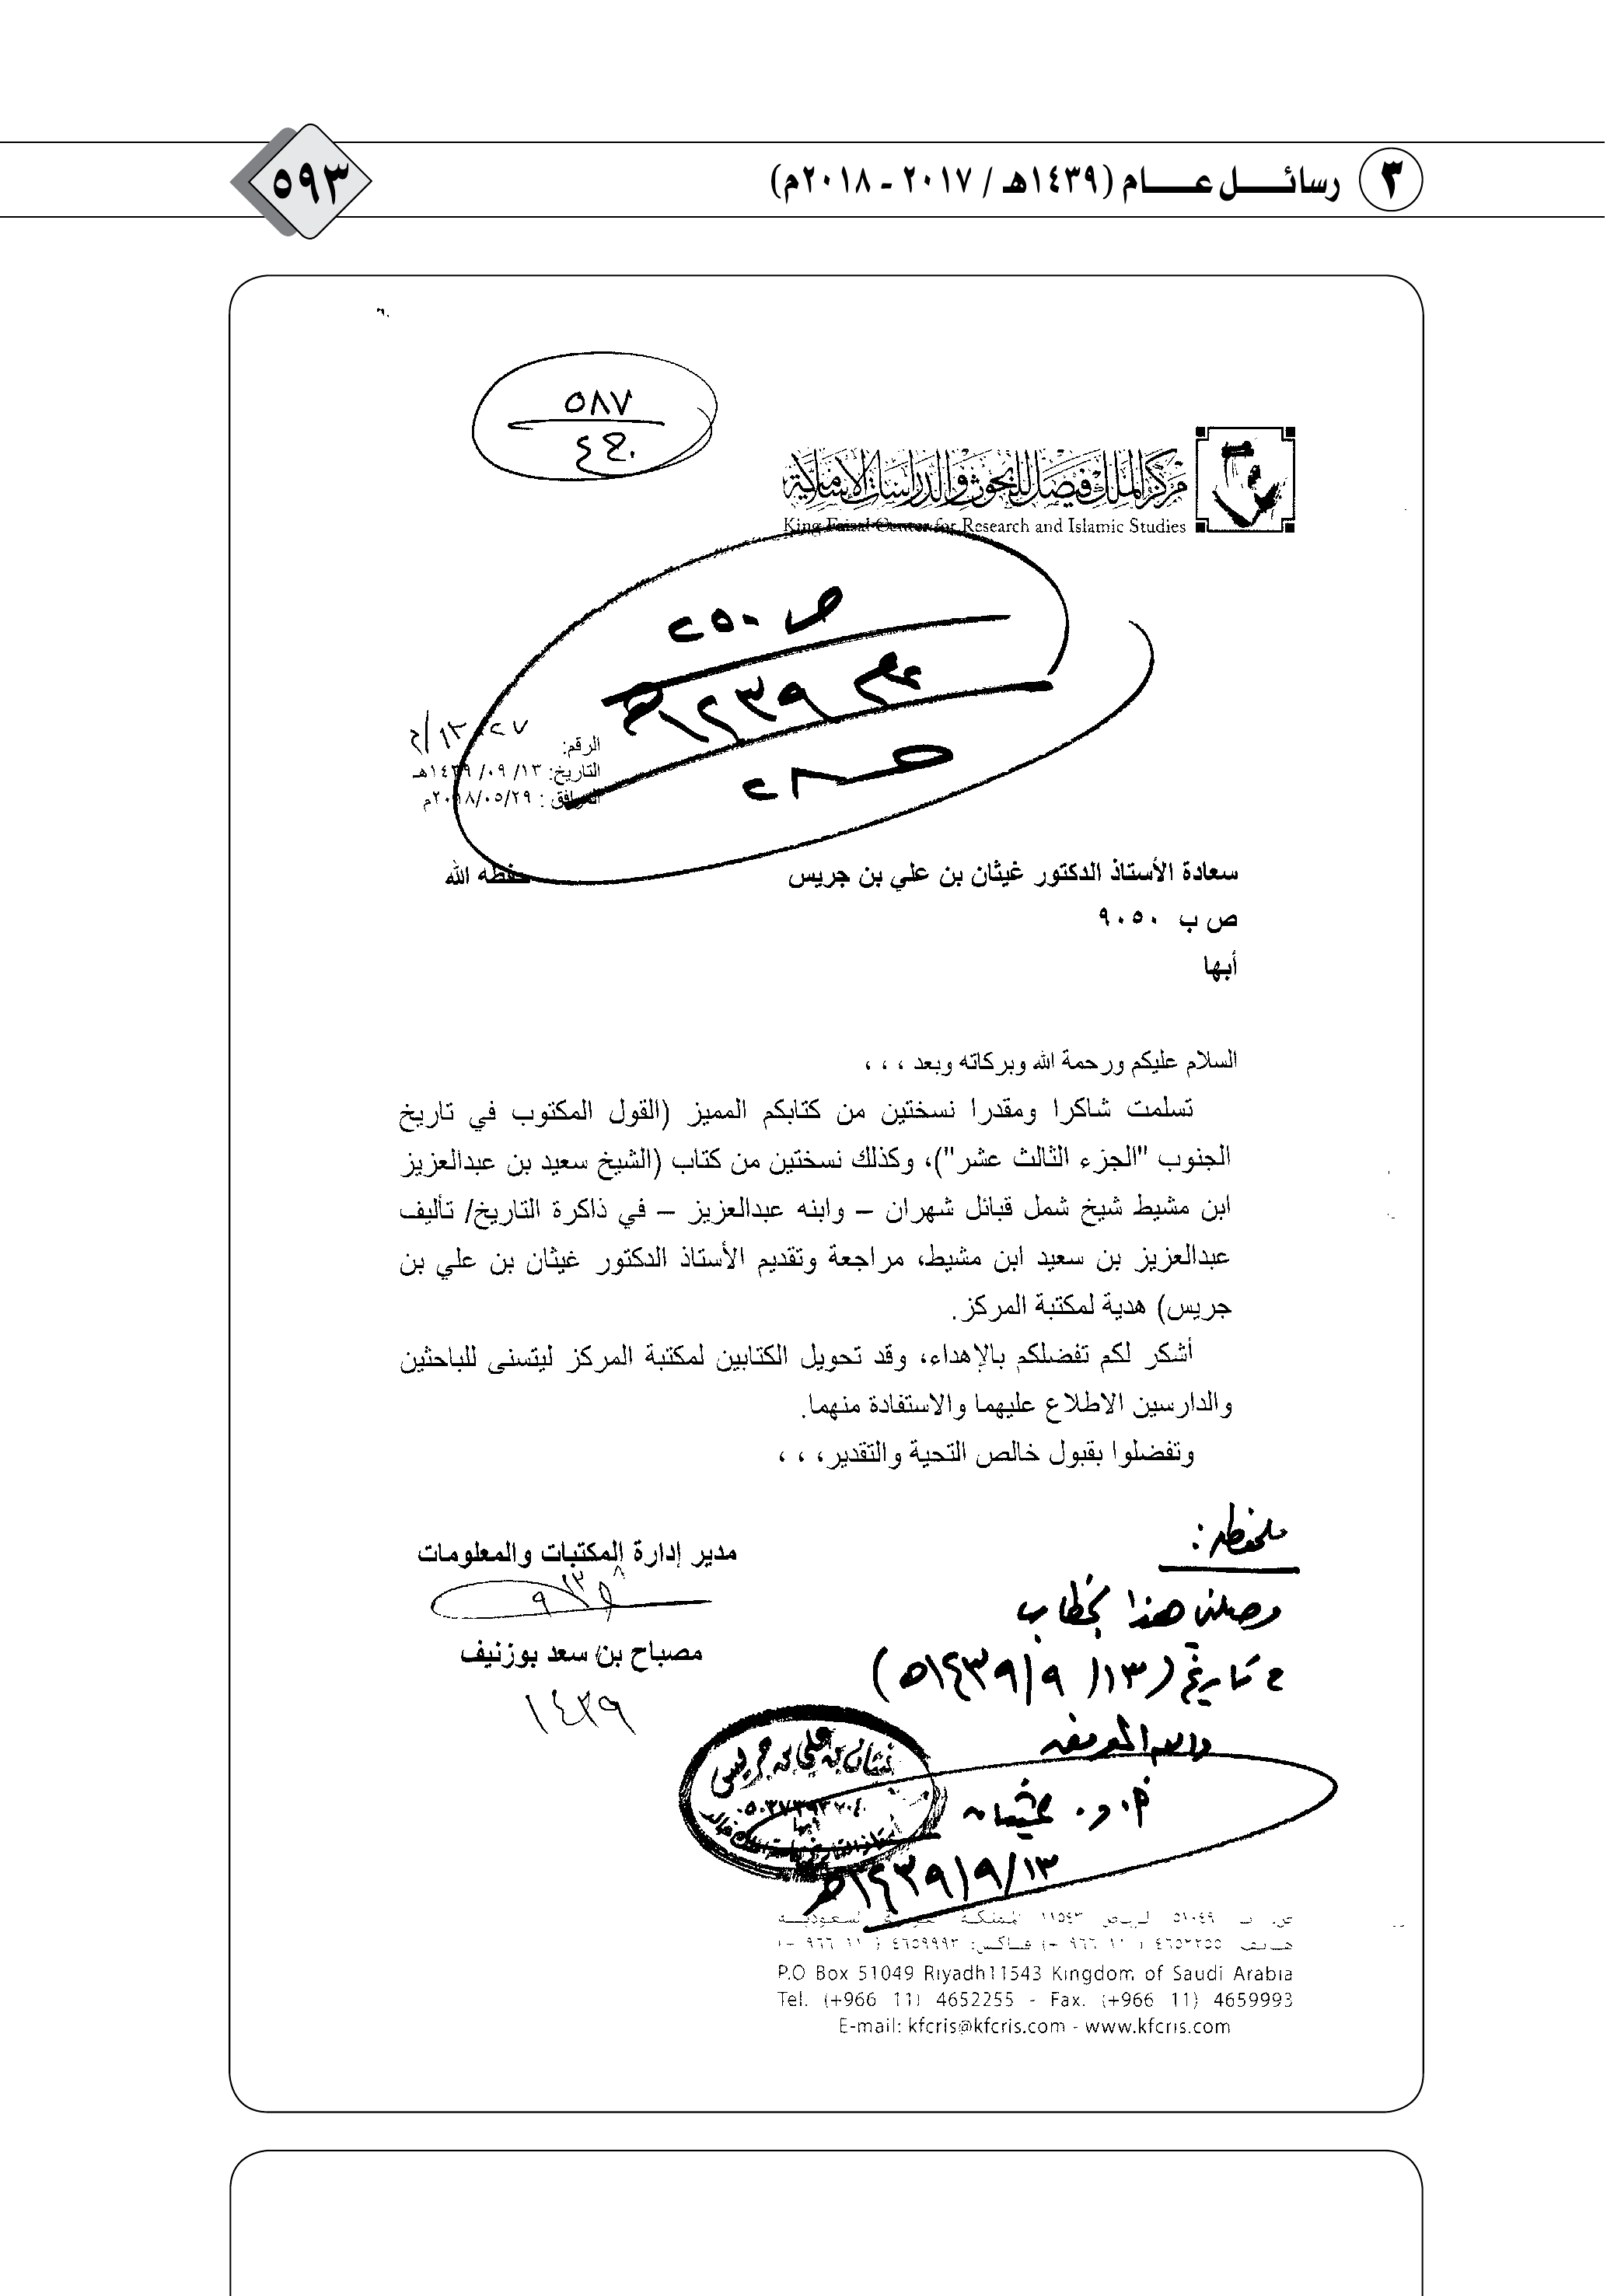 ٣ رسائــل عــام (١٤٣٩هـ / ٢٠١٧ ـ ٢٠١٨م)
٥٩٣
٥٨٧
مركز الملك فيصل للبحوث والدراسات الإسلامية
King Faisal Center for Research and Islamic Studies
ص ٢٥٠
١٤٣٩
الرقم:
التاريخ: ١٣/ ٠٩/ ١٤٣٩هـ
الموافق : ٢٠١٨/٠٥/٢٩م
سعادة الأستاذ الدكتور غيثان بن علي بن جريس حفظه الله
ص ب ٩٠٥٠
أبها
السلام عليكم ورحمة الله وبركاته وبعد ، ، ،
تسلمت شاكرا ومقدرا نسختين من كتابكم المميز (القول المكتوب في تاريخ
الجنوب "الجزء الثالث عشر")، وكذلك نسختين من كتاب (الشيخ سعيد بن عبدالعزيز
ابن مشيط شيخ شمل قبائل شهران – وابنه عبدالعزيز – في ذاكرة التاريخ/ تأليف
عبدالعزيز بن سعيد ابن مشيط، مراجعة وتقديم الأستاذ الدكتور غيثان بن علي بن
جريس) هدية لمكتبة المركز.
أشكر لكم تفضلكم بالإهداء، وقد تحويل الكتابين لمكتبة المركز ليتسنى للباحثين
والدارسين الاطلاع عليهما والاستفادة منهما.
وتفضلوا بقبول خالص التحية والتقدير، ، ،
مدير إدارة المكتبات والمعلومات
مصباح بن سعد بوزنيف
١٤٣٩
ملحوظة :
وصلنا هذا الخطاب
في تاريخ (١٣/ ٩/ ١٤٣٩هـ)
والله الموفق
أ. د. غيثان
١٣/ ٩/ ١٤٣٩هـ
غيثان بن علي بن جريس
ص. ب ٥١٠٤٩ الرياض ١١٥٤٣ المملكة العربية السعودية
هاتف ٤٦٥٢٢٥٥ (١١ ٩٦٦ +) فاكس: ٤٦٥٩٩٩٣ (١١ ٩٦٦ +)
P.O Box 51049 Riyadh11543 Kingdom of Saudi Arabia
Tel. (+966 11) 4652255 - Fax. (+966 11) 4659993
E-mail: kfcris@kfcris.com - www.kfcris.com